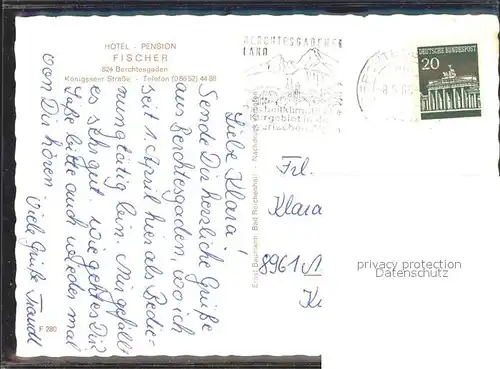 HOTEL - PENSION
FISCHER
824 Berchtesgaden
Königsseer Straße - Telefon (08652) 44 88
Liebe Klara!
Sende Dir herzliche Grüße
aus Berchtesgaden, wo ich
seit 1. April hier als Bedie-
nung tätig bin. Mir gefällt
es sehr gut. wie geht es Dir
Laß bitte auch wieder mal
von Dir hören. Viele Grüße Traudl
F 280
Ernst Baumann, Bad Reichenhall
BERCHTESGADENER
LAND
DEUTSCHE BUNDESPOST
20
Frl.
Klara
8961
privacy protection
Datenschutz